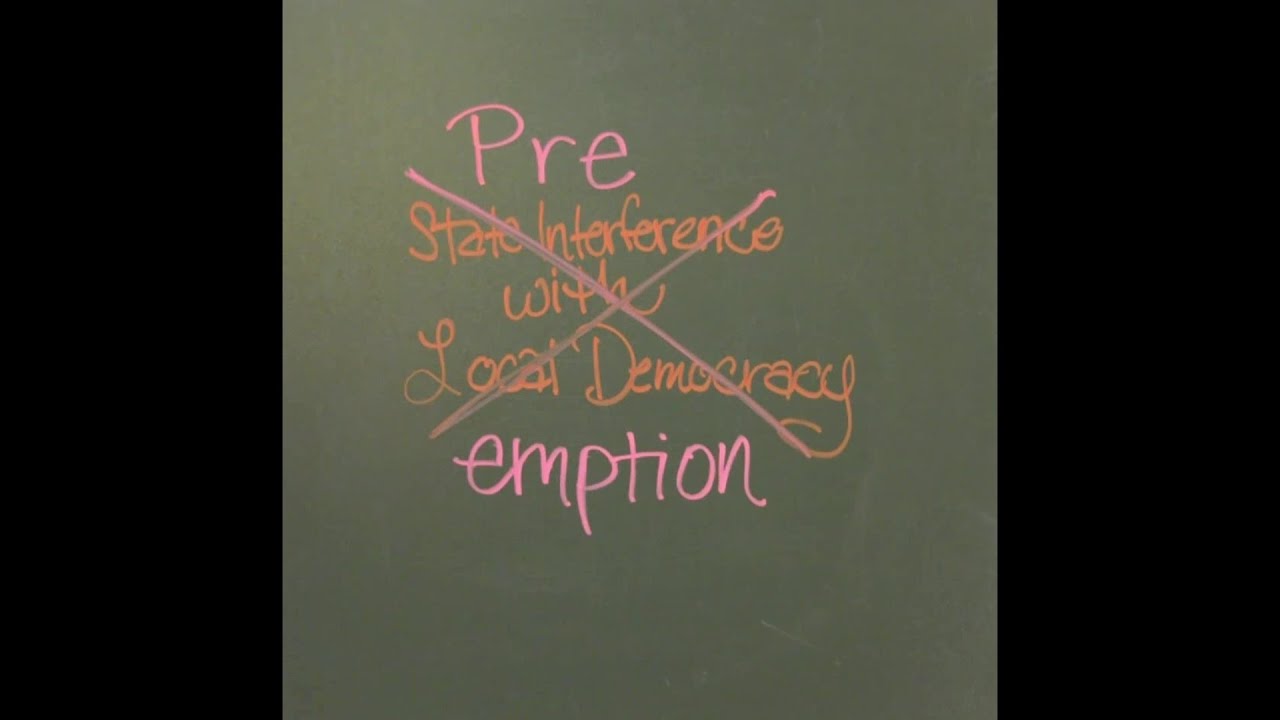 Pre
State Interference
with
Local Democracy
emption